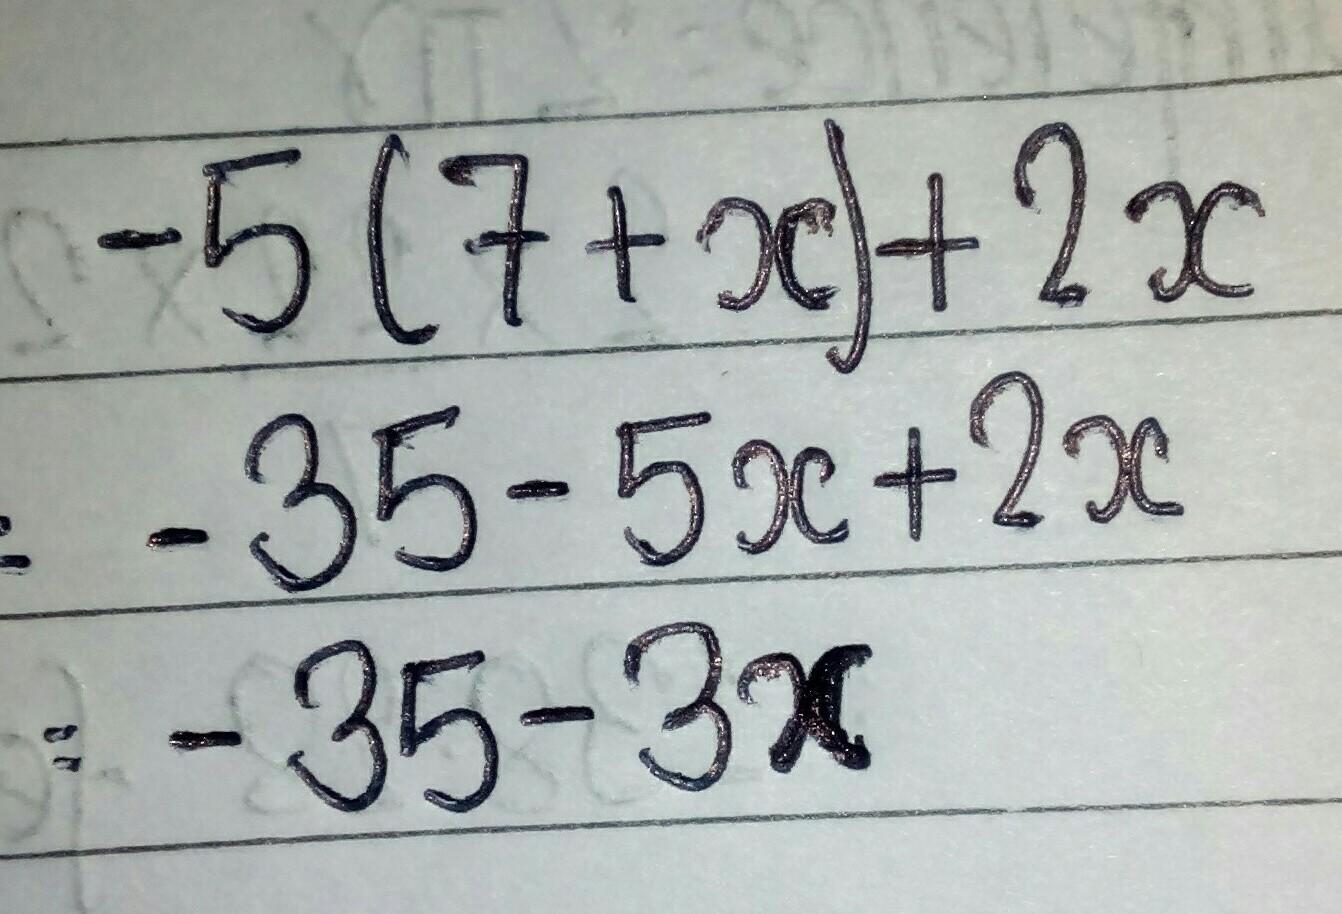 -5(7+x)+2x
= -35-5x+2x
= -35-3x